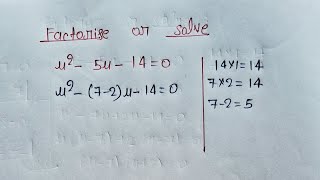 Factorise or solve
x² - 5x - 14 = 0
x² - (7-2)x - 14 = 0
14×1 = 14
7×2 = 14
7-2 = 5